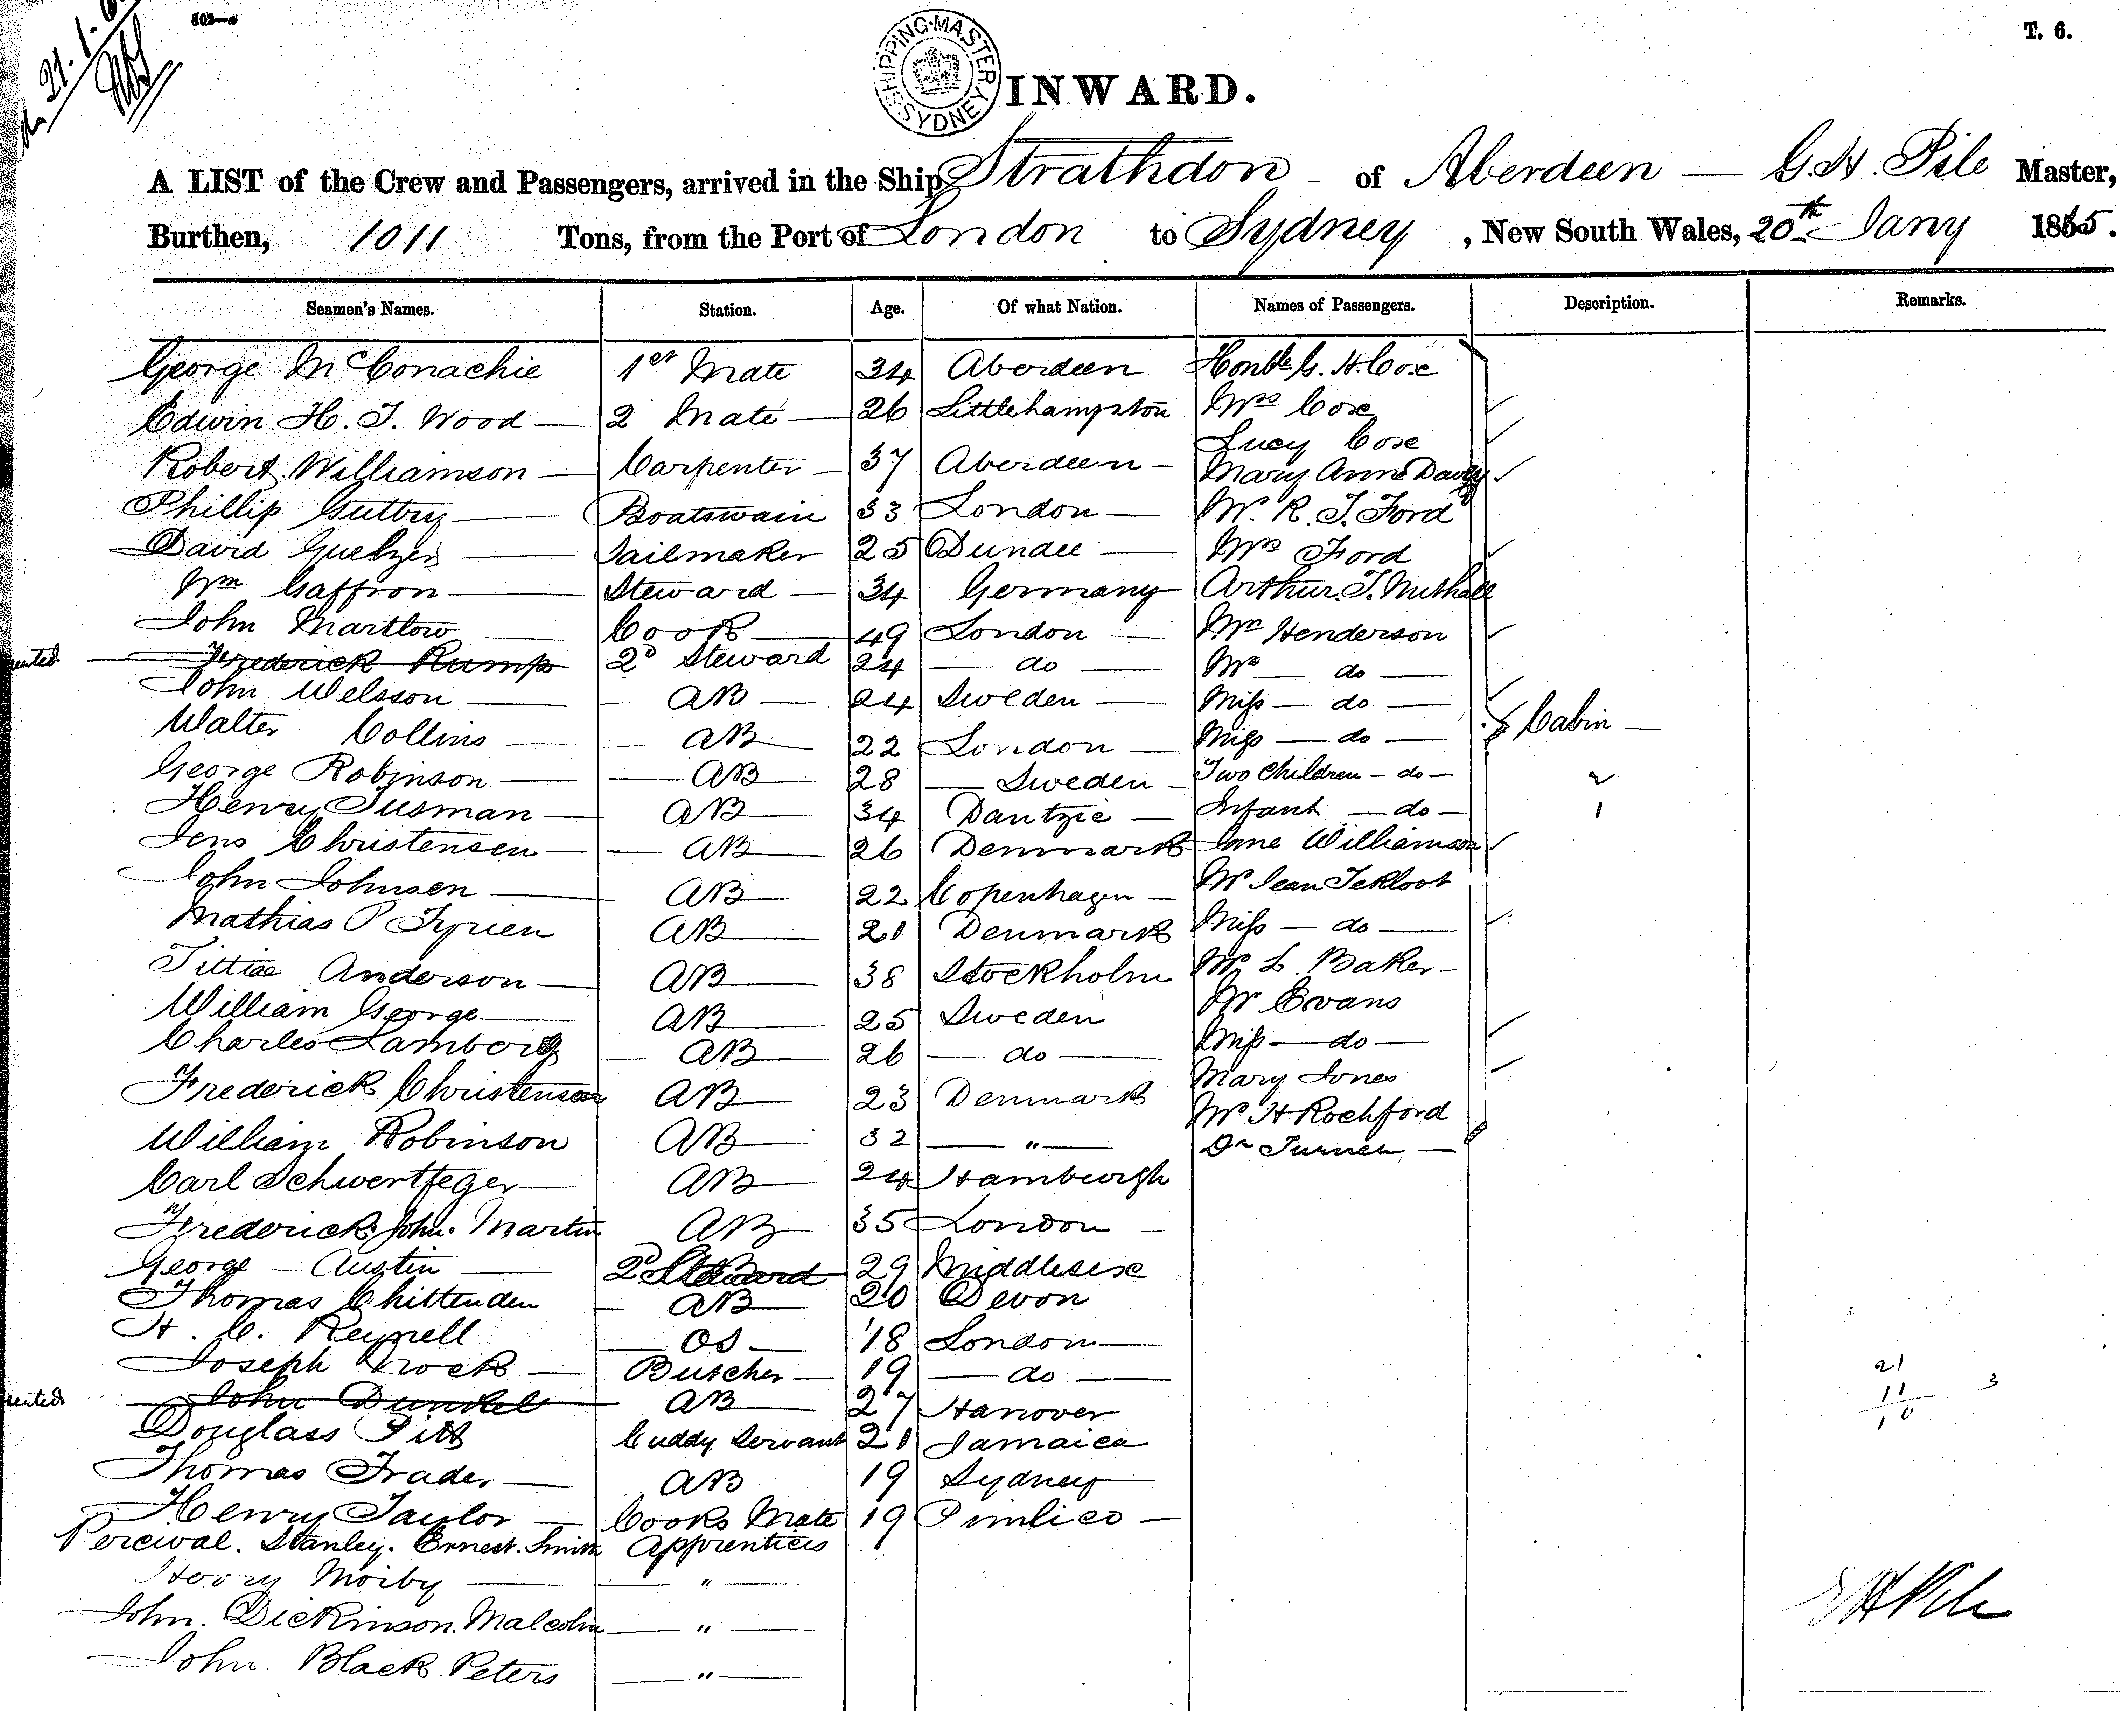 802—a
T. 6.
SHIPPING MASTER SYDNEY
INWARD.
A LIST of the Crew and Passengers, arrived in the Ship Strathdon of Aberdeen — G. H. Pile Master,
Burthen, 1011 Tons, from the Port of London to Sydney, New South Wales, 20th Jany 1865.
Seamen's Names. Station. Age. Of what Nation. Names of Passengers. Description. Remarks.
George McConachie 1st Mate 34 Aberdeen Honble G. H. Cox
Edwin H. J. Wood — 2 Mate — 26 Littlehampton Mrs Cox
Lucy Cox
Robert Williamson — Carpenter — 37 Aberdeen — Mary Anne
Phillip — Boatswain 33 London — Mr. R. J. Ford
David — Sailmaker 25 Dundee — Mrs Ford
Wm Gaffron — Steward — 34 Germany Arthur J.
John Martlow — Cook — 49 London — Mr Henderson
Frederick Rump 2d Steward 24 — do — Mrs — do —
John Welsson — AB — 24 Sweden — Miss — do —
Walter Collins — AB 22 London — Miss — do — Cabin —
George Robinson — AB 28 — Sweden — Two Children — do — 2
Henry Susman — AB — 34 Dantzic — Infant — do — 1
Jens Christensen — AB — 26 Denmark Jane Williamson
John Johnsen — AB — 22 Copenhagen — Mr Jean
Mathias P AB — 21 Denmark Miss — do —
Anderson — AB — 38 Stockholm Mr L. Baker —
William George — AB — 25 Sweden Mr Evans
Charles Lamberg — AB — 26 — do — Miss — do —
Mary Jones
Frederick Christensen AB — 23 Denmark Mr H Rochford
William Robinson AB — 32 — " — Dr Turner —
Carl Schwertfeger — AB — 24 Hamburgh
Frederick John. Martin AB — 35 London —
George — Austin — 2d Steward 29 Middlesex
Thomas Chittenden — AB — 20 Devon
H. C. Reynell — OS — 18 London —
Joseph — Butcher — 19 — do —
John Dunkel AB — 27 Hanover
Douglass Pitt Cuddy Servant 21 Jamaica
Thomas Trader — AB 19 Sydney
Henry Taylor — Cooks Mate 19 Pimlico —
Percival. Stanley. Ernest. Smith Apprentices
Moiby — "
John. Dickinson. Malcolm — " —
John. Black Peters — " —
21
11
10
3